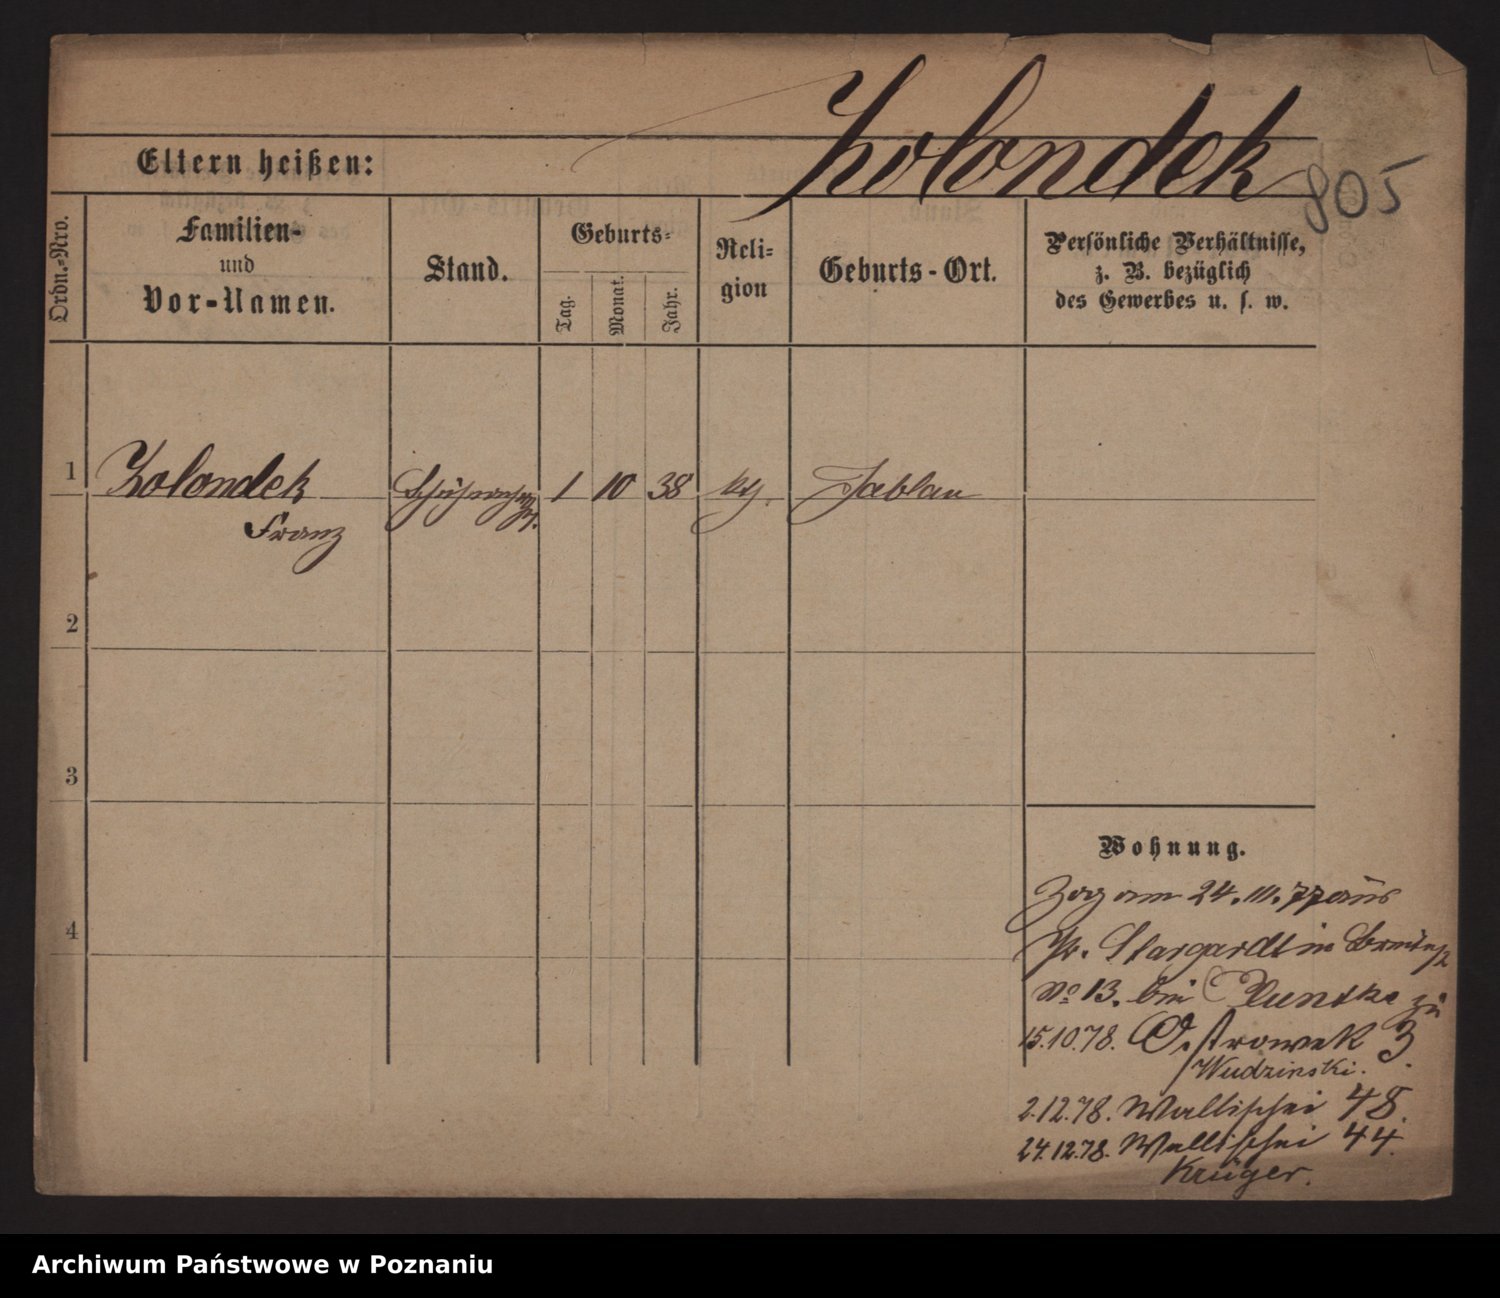 Zolondek
805
Eltern heißen:
Ordn.-Nro.
Familien-
und
Vor-Namen.
Stand.
Geburts-
Tag.
Monat.
Jahr.
Reli-
gion
Geburts-Ort.
Persönliche Verhältnisse,
z. B. bezüglich
des Gewerbes u. s. w.
1
Zolondek
Franz
1 10 38
kth.
Jablau
2
3
4
Wohnung.
Zog am 24. 10. 77 aus
Pr. Stargardt in
No 13. bei zu
15.10.78. Ostrowek 3.
Wudzinski.
2.12.78. Wallischei 48.
24.12.78. Wallischei 44.
Krüger.
Archiwum Państwowe w Poznaniu